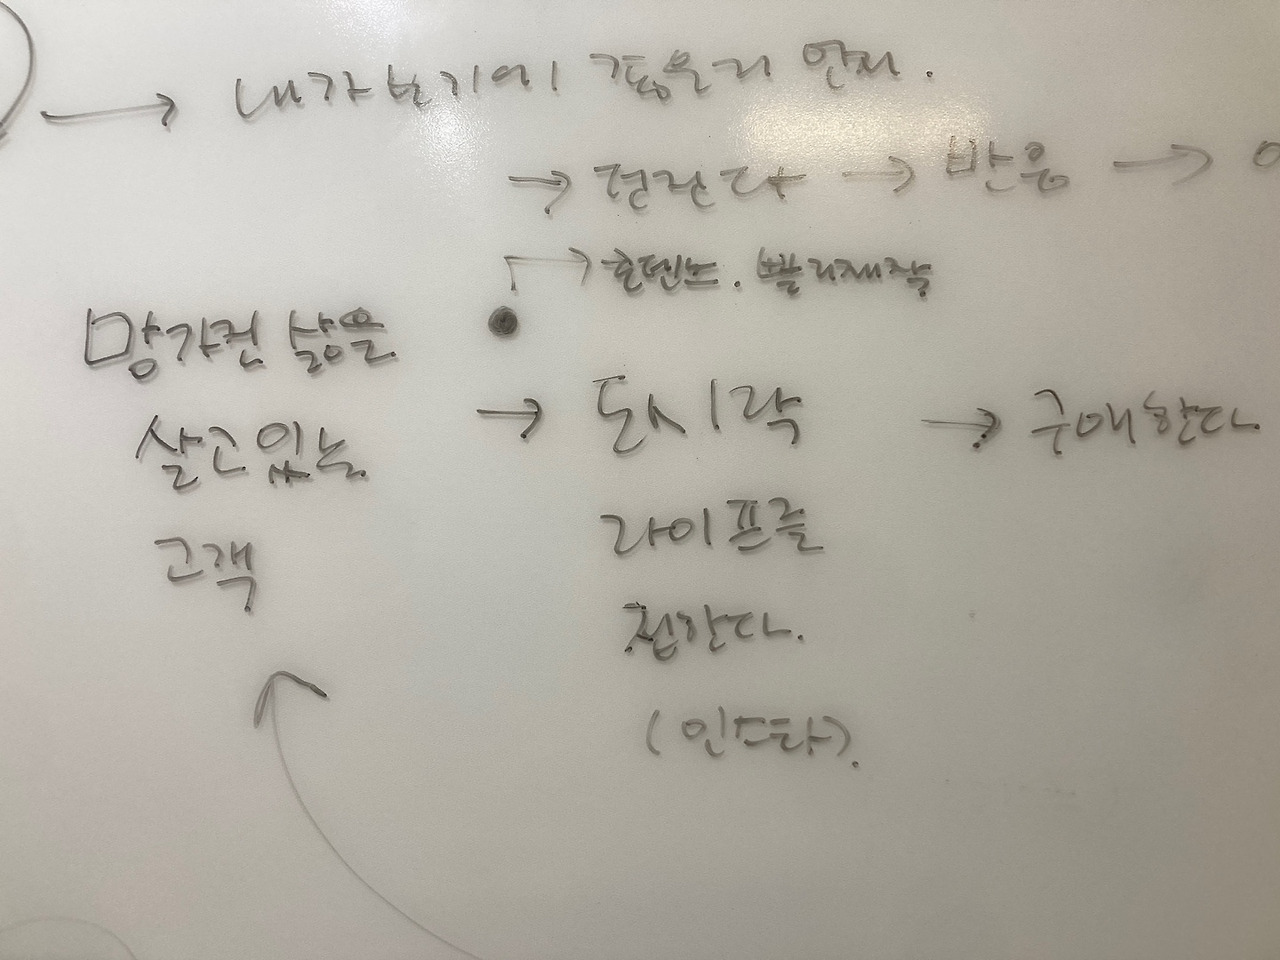 → 내가 보기에 좋은거 안자.
→ 던진다 → 반응 →
→ 콘텐츠. 빨리 제작
망가진 삶을
살고 있는
고객
→ 도시락
라이프를
전한다.
(인스타).
→ 구매한다.